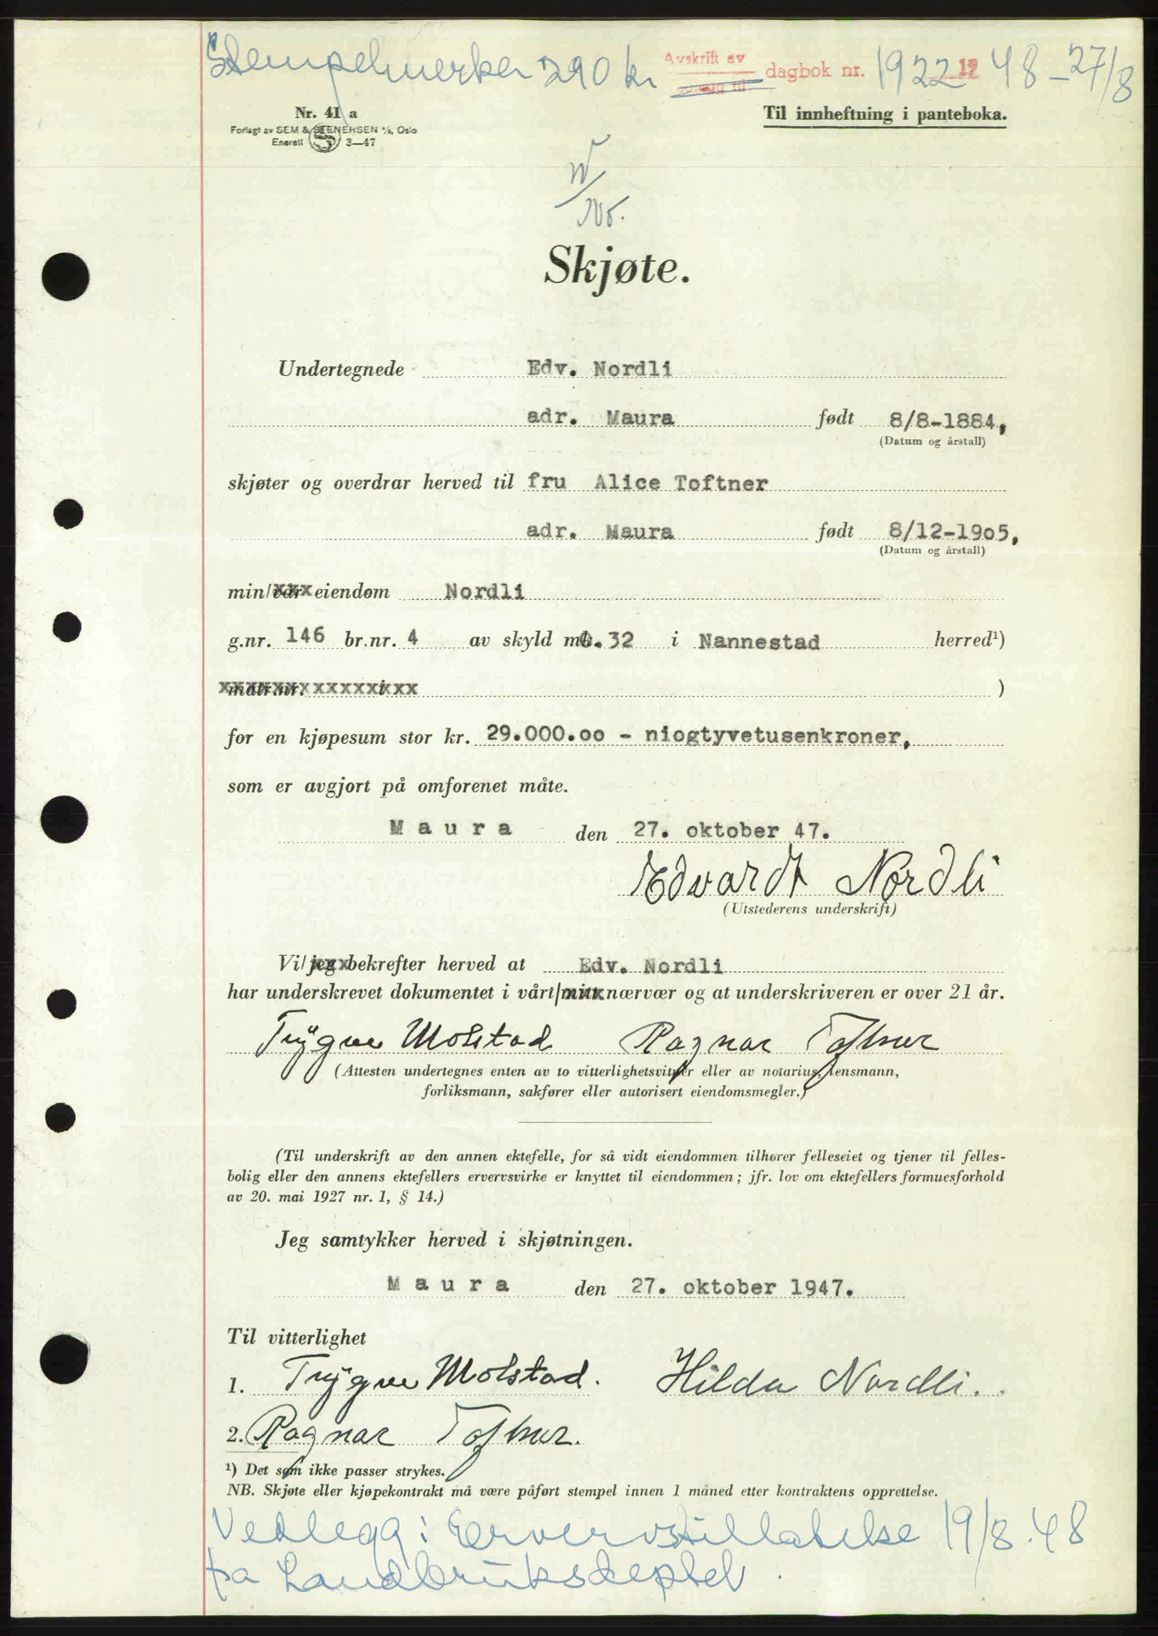 Stempelmerker 290 kr Avskrift av dagbok nr. 1922 1948 - 27/8
Nr. 41 a
Til innheftning i panteboka.
Forlagt av SEM & STENERSEN A/S, Oslo
Enerett S 3—47
Skjøte.
Undertegnede Edv. Nordli
adr. Maura født 8/8-1884,
(Datum og årstall)
skjøter og overdrar herved til fru Alice Toftner
adr. Maura født 8/12-1905,
(Datum og årstall)
min/vår eiendom Nordli
g.nr. 146 br.nr. 4 av skyld m 0.32 i Nannestad herred¹)
matr.nr. i )
for en kjøpesum stor kr. 29.000.oo - niogtyvetusenkroner,
som er avgjort på omforenet måte.
Maura den 27. oktober 47.
Edvardt Nordli
(Utstederens underskrift)
Vi/jeg bekrefter herved at Edv. Nordli
har underskrevet dokumentet i vårt/mitt nærvær og at underskriveren er over 21 år.
Trygve Molstad Ragnar Toftner
(Attesten undertegnes enten av to vitterlighetsvitner eller av notarius, lensmann,
forliksmann, sakfører eller autorisert eiendomsmegler.)
(Til underskrift av den annen ektefelle, for så vidt eiendommen tilhører felleseiet og tjener til felles-
bolig eller den annens ektefellers ervervsvirke er knyttet til eiendommen; jfr. lov om ektefellers formuesforhold
av 20. mai 1927 nr. 1, § 14.)
Jeg samtykker herved i skjøtningen.
Maura den 27. oktober 1947.
Til vitterlighet
1. Trygve Molstad. Hilda Nordli.
2. Ragnar Toftner.
¹) Det som ikke passer strykes.
NB. Skjøte eller kjøpekontrakt må være påført stempel innen 1 måned etter kontraktens opprettelse.
Vedlegg: Ervervstillatelse 19/8.48
fra Landbruksdeptet.